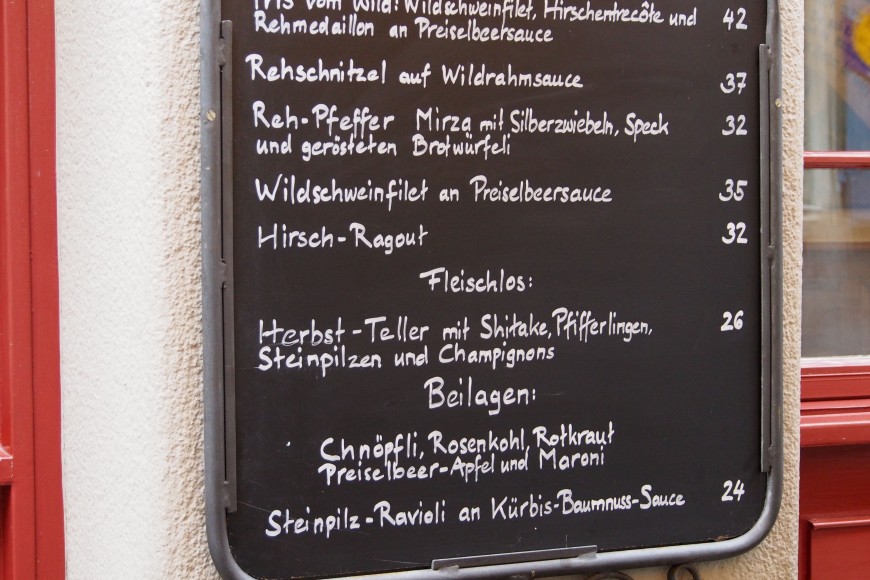 Tris vom Wild: Wildschweinfilet, Hirschentrecôte und
Rehmedaillon an Preiselbeersauce 42
Rehschnitzel auf Wildrahmsauce 37
Reh-Pfeffer Mirza mit Silberzwiebeln, Speck 32
und gerösteten Brotwürfeli
Wildschweinfilet an Preiselbeersauce 35
Hirsch-Ragout 32
Fleischlos:
Herbst-Teller mit Shitake, Pfifferlingen, 26
Steinpilzen und Champignons
Beilagen:
Chnöpfli, Rosenkohl, Rotkraut
Preiselbeer-Apfel und Maroni
Steinpilz-Ravioli an Kürbis-Baumnuss-Sauce 24